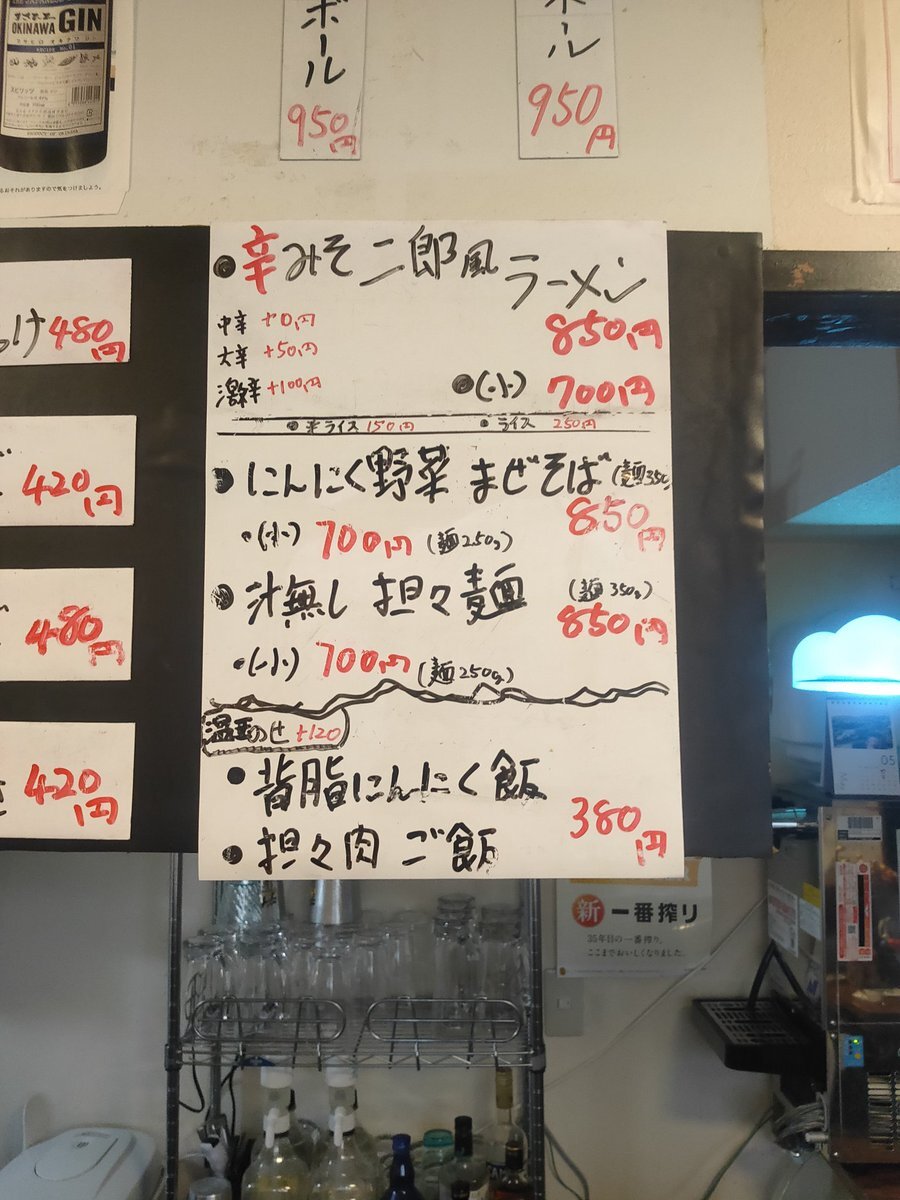 OKINAWA GIN
スピリッツ
PRODUCT OF OKINAWA
るおそれがありますので気をつけましょう。
ボール
950円
ール
950円
け480円
420円
480円
420円
●辛みそ二郎風ラーメン
中辛 +0円
大辛 +50円
激辛 +100円
850円
●(小) 700円
●半ライス 150円 ●ライス 250円
●にんにく野菜 まぜそば(麺350
850円
●(小) 700円(麺250g)
●汁無し 担々麺 (麺350g)
850円
●(小) 700円(麺250g)
温玉のせ +120
●背脂にんにく飯
●担々肉 ご飯
380円
新 一番搾り
35年目の一番搾り。
ここまでおいしくなりました。
05